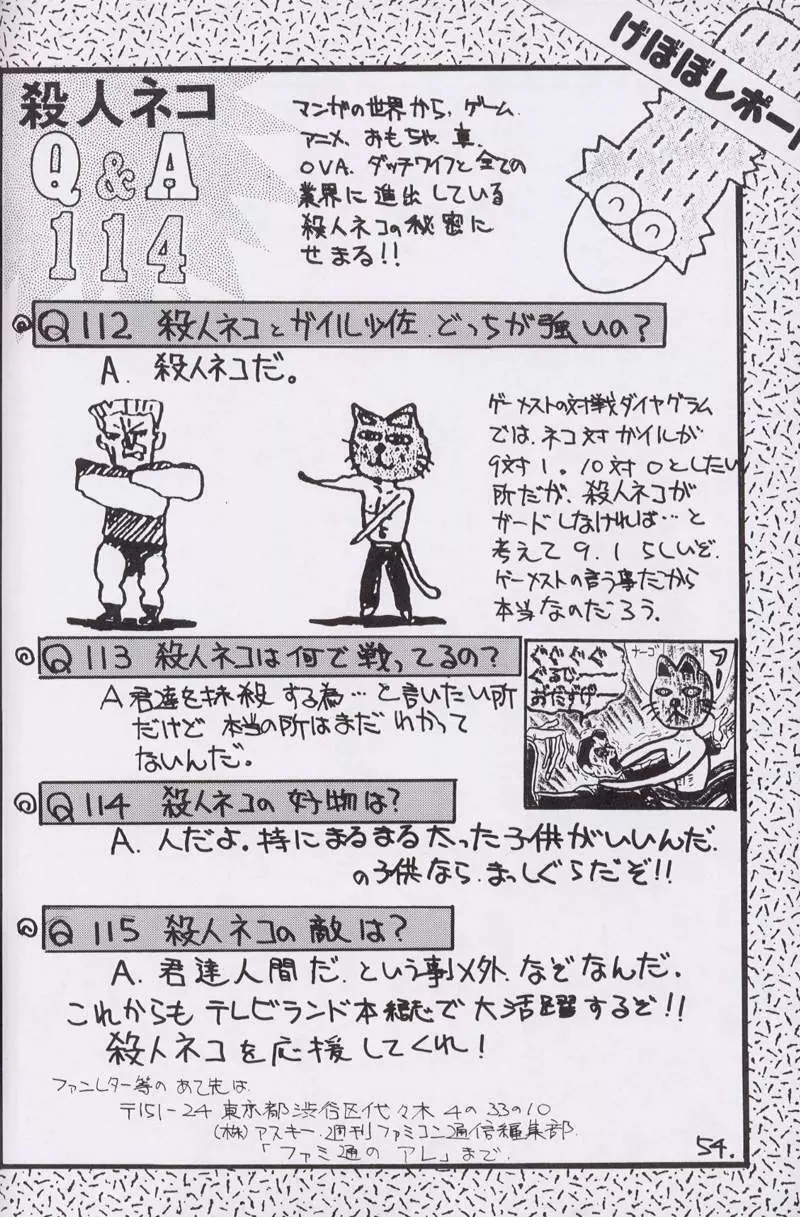 げぼぼレポート
殺人ネコ
Q&A
114
マンガの世界から、ゲーム、
アニメ、おもちゃ、車、
OVA、ダッチワイフと全ての
業界に進出している
殺人ネコの秘密に
せまる!!
Q112 殺人ネコとガイル少佐、どっちが強いの?
A. 殺人ネコだ。
ゲーメストの対戦ダイヤグラム
では、ネコ対ガイルが
9対1。10対0としたい
所だが、殺人ネコが
ガードしなければ…と
考えて9.1らしいぞ。
ゲーメストの言う事だから
本当なのだろう。
Q113 殺人ネコは何で戦ってるの?
A 君達を抹殺する為…と言いたい所
だけど本当の所はまだわかって
ないんだ。
ぐぐぐぐ
ぐるじい
おだずげ
ナーゴ
フー
Q114 殺人ネコの好物は?
A. 人だよ。特にまるまる太った子供がいいんだ。
の子供なら、まっしぐらだぞ!!
Q115 殺人ネコの敵は?
A. 君達人間だ、という事以外、なぞなんだ。
これからもテレビランド本誌で大活躍するぞ!!
殺人ネコを応援してくれ!
ファンレター等のあて先は
〒151-24 東京都渋谷区代々木4の33の10
(株)アスキー、週刊ファミコン通信編集部
「ファミ通のアレ」まで。
54.